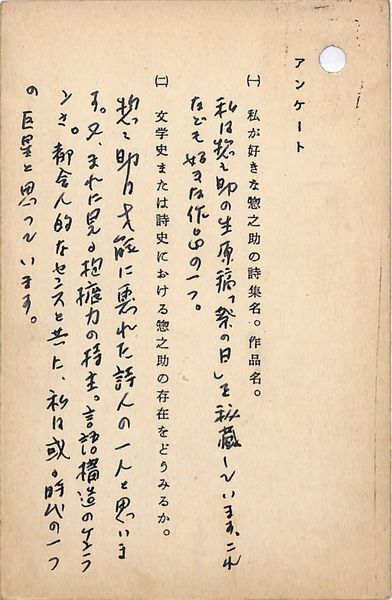 アンケート
㈠ 私が好きな惣之助の詩集名。作品名。
私は惣之助の生原稿「祭の日」を秘蔵しています。これ
なども好きな作品の一つ。
㈡ 文学史または詩史における惣之助の存在をどうみるか。
惣之助は才能に恵れた詩人の一人と思いま
す。又、まれに見る抱擁力の持主。言語構造のケンラ
ンさ。都会人的なセンスと共に、私は或る時代の一つ
の巨星と思っています。